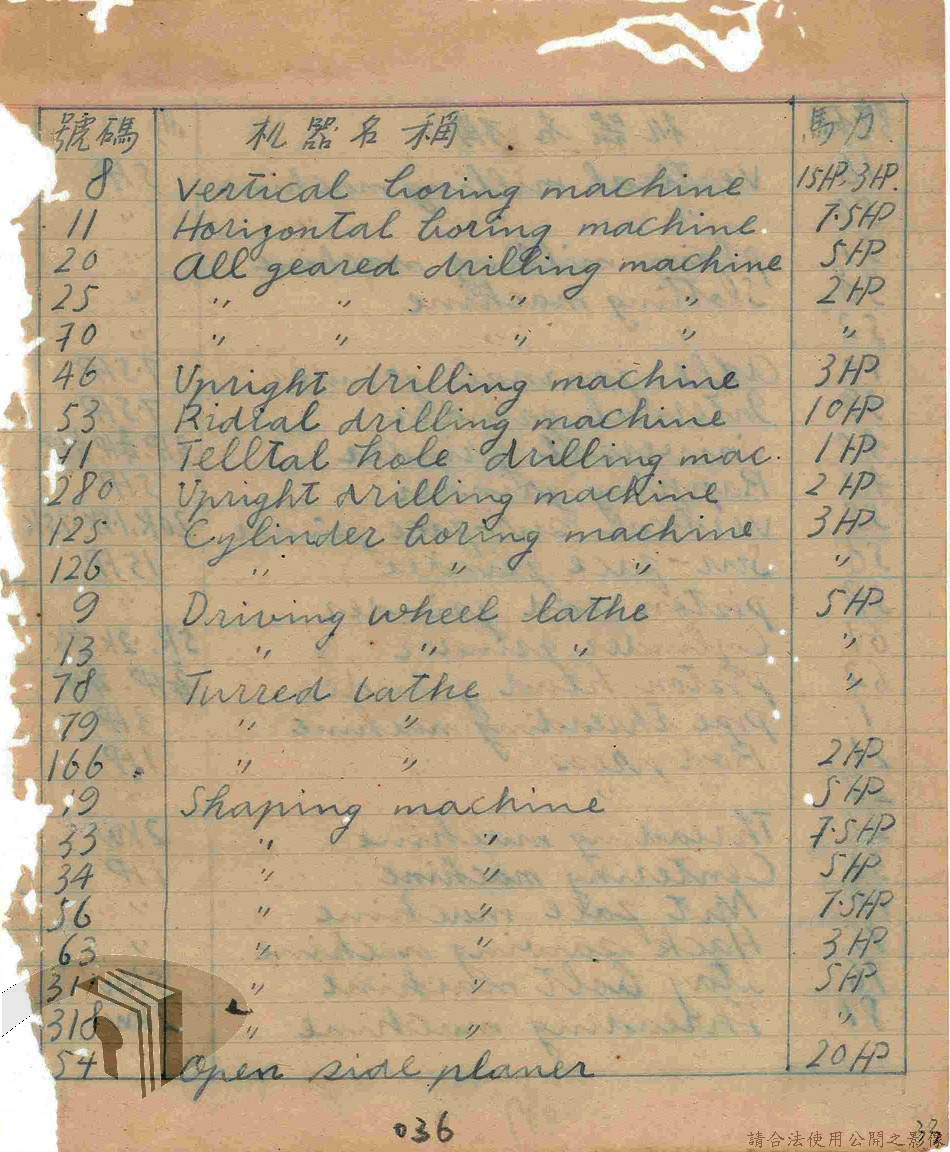 號碼 机器名稱 馬力
8 Vertical boring machine 15HP. 3HP.
11 Horizontal boring machine. 7.5HP
20 All geared drilling machine 5HP
25 〃 〃 〃 〃 2HP
70 〃 〃 〃 〃 〃
46 Upright drilling machine 3HP
53 Ridial drilling machine 10HP
71 Telltal hole drilling mac. 1HP
280 Upright drilling machine 2HP
125 Cylinder boring machine 3HP
126 〃 〃 〃 〃
9 Driving wheel lathe 5HP
13 〃 〃 〃 〃
78 Turred lathe 〃
79 〃 〃
166 〃 〃 2HP
19 Shaping machine 5HP
33 〃 〃 7.5HP
34 〃 〃 5HP
56 〃 〃 7.5HP
63 〃 〃 3HP
〃 〃 5HP
318 〃 〃 〃
54 Open side planer 20HP
036
請合法使用公開之影像